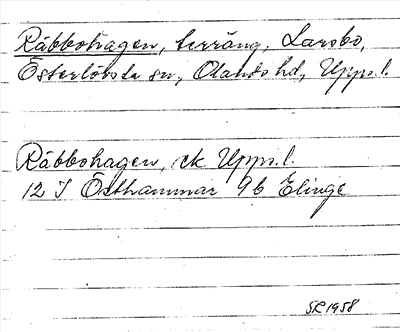 Råbbohagen, terräng, Larsbo,
Österlövsta sn, Olands hd, Upps.l.
Råbbohagen, ek Upps.l.
12 I Östhammar 9b Elinge
SR 1958